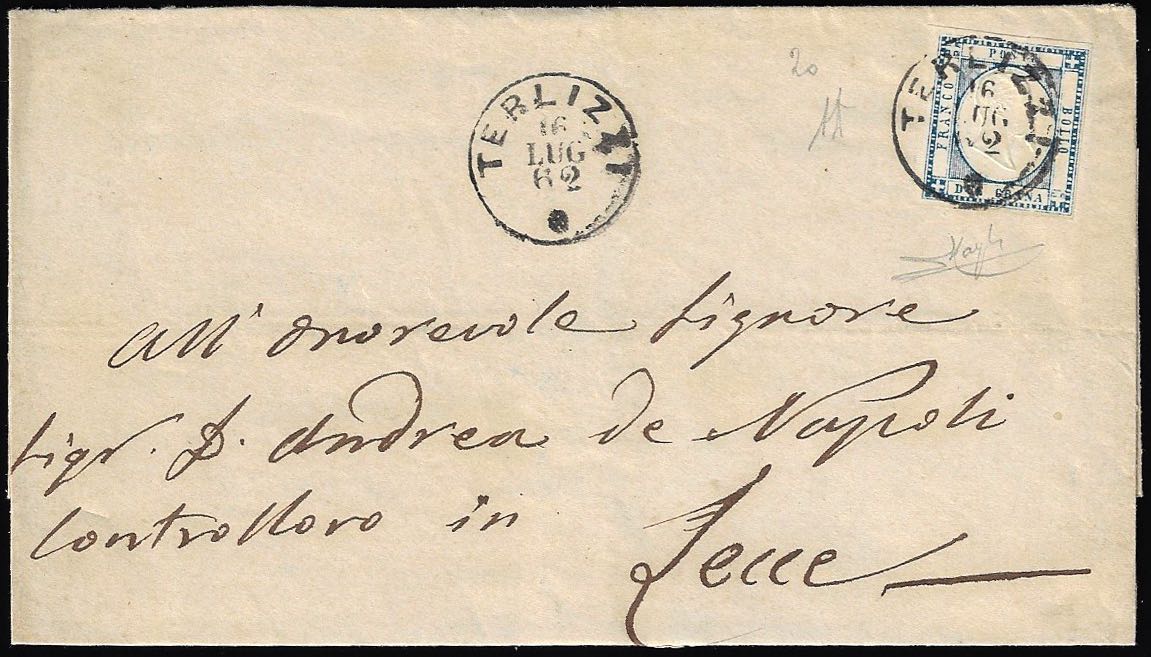 TERLIZZI
16
LUG
62
FRANCO
PO
BOLLO
DUE GRANA
TERLIZZI
16
LUG
62
20
All' Onorevole Signore
Sigr. D. Andrea de Napoli
Controlloro in
Lecce